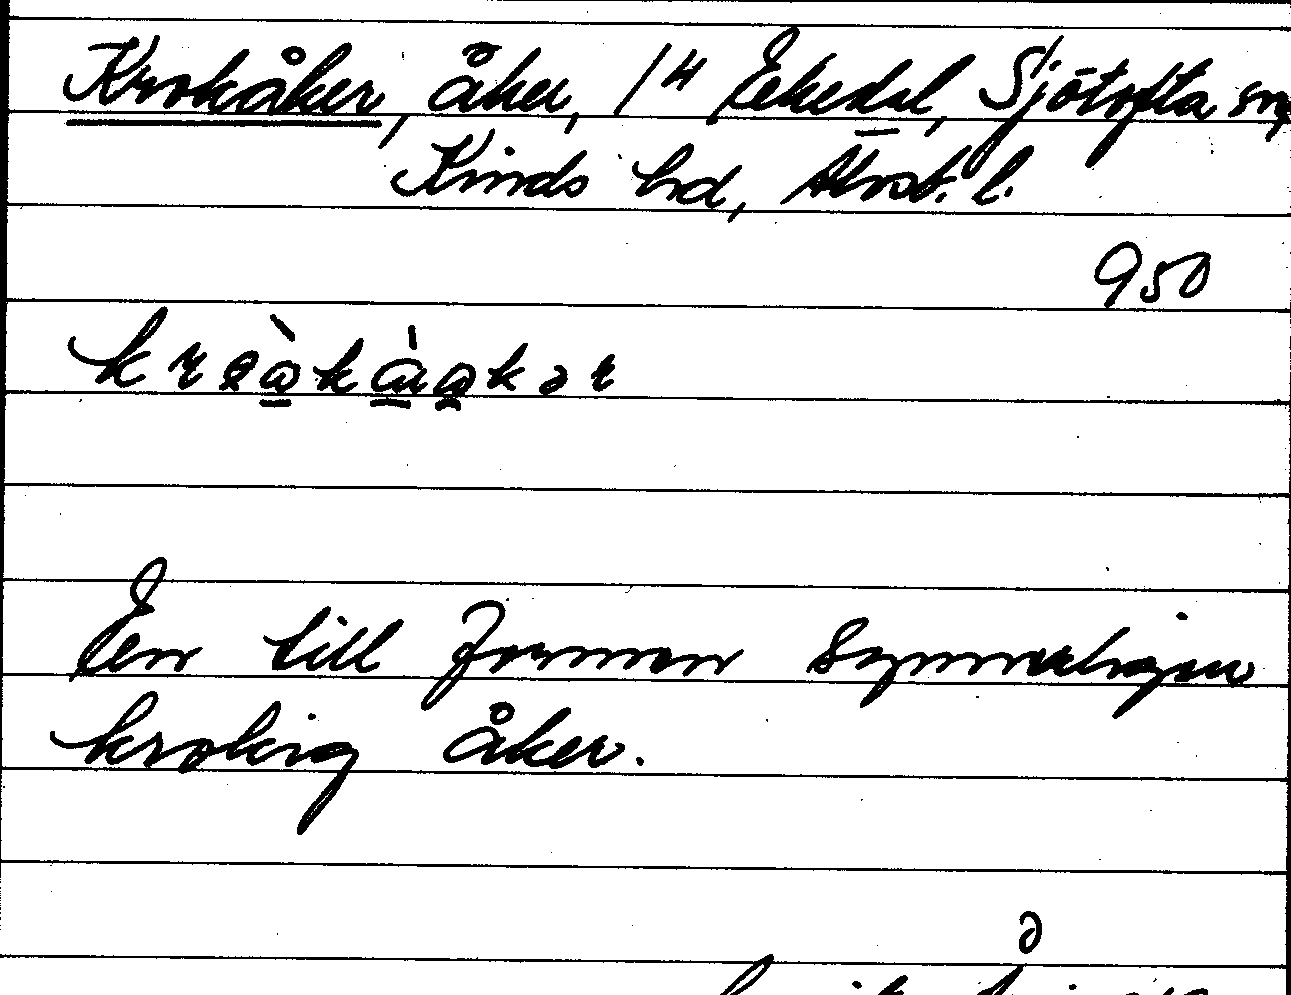 Krokåker, åker, 1⁴ Ekedal, Sjötofta sn,
Kinds hd, Älvsb. l.
950
En till formen synnerligen
krokig åker.